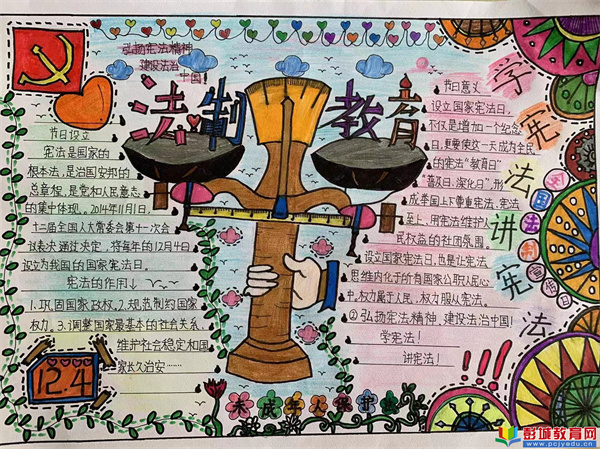 弘扬宪法精神
建设法治
中国!
法制教育
节日设立
宪法是国家的
根本法,是治国安邦的
总章程,是党和人民意志
的集中体现。2014年11月1日,
十二届全国人大常委会第十一次会
议表决通过决定,将每年的12月4日
设立为我国的国家宪法日。
宪法的作用↓
1.巩固国家政权,2.规范制约国家
权力。3.调整国家最基本的社会关系、
维护社会稳定和国
家长久治安……
12.4
节日意义
设立国家宪法日,
不仅是增加一个纪念
日,更要使这一天成为全民
的宪法“教育日”
“普及日、深化日”,形
成举国上下尊重宪法、宪法
至上、用宪法维护人
民权益的社团氛围。
设立国家宪法日,也是让宪法
思维内化于所有国家公职人民心
中,权力属于人民,权力服从宪法。
②弘扬宪法精神,建设法治中国!
学宪法!
讲宪法!
学宪法讲宪法
国家法制宣传日
!!!
彭城教育网
www.pcjyedu.com